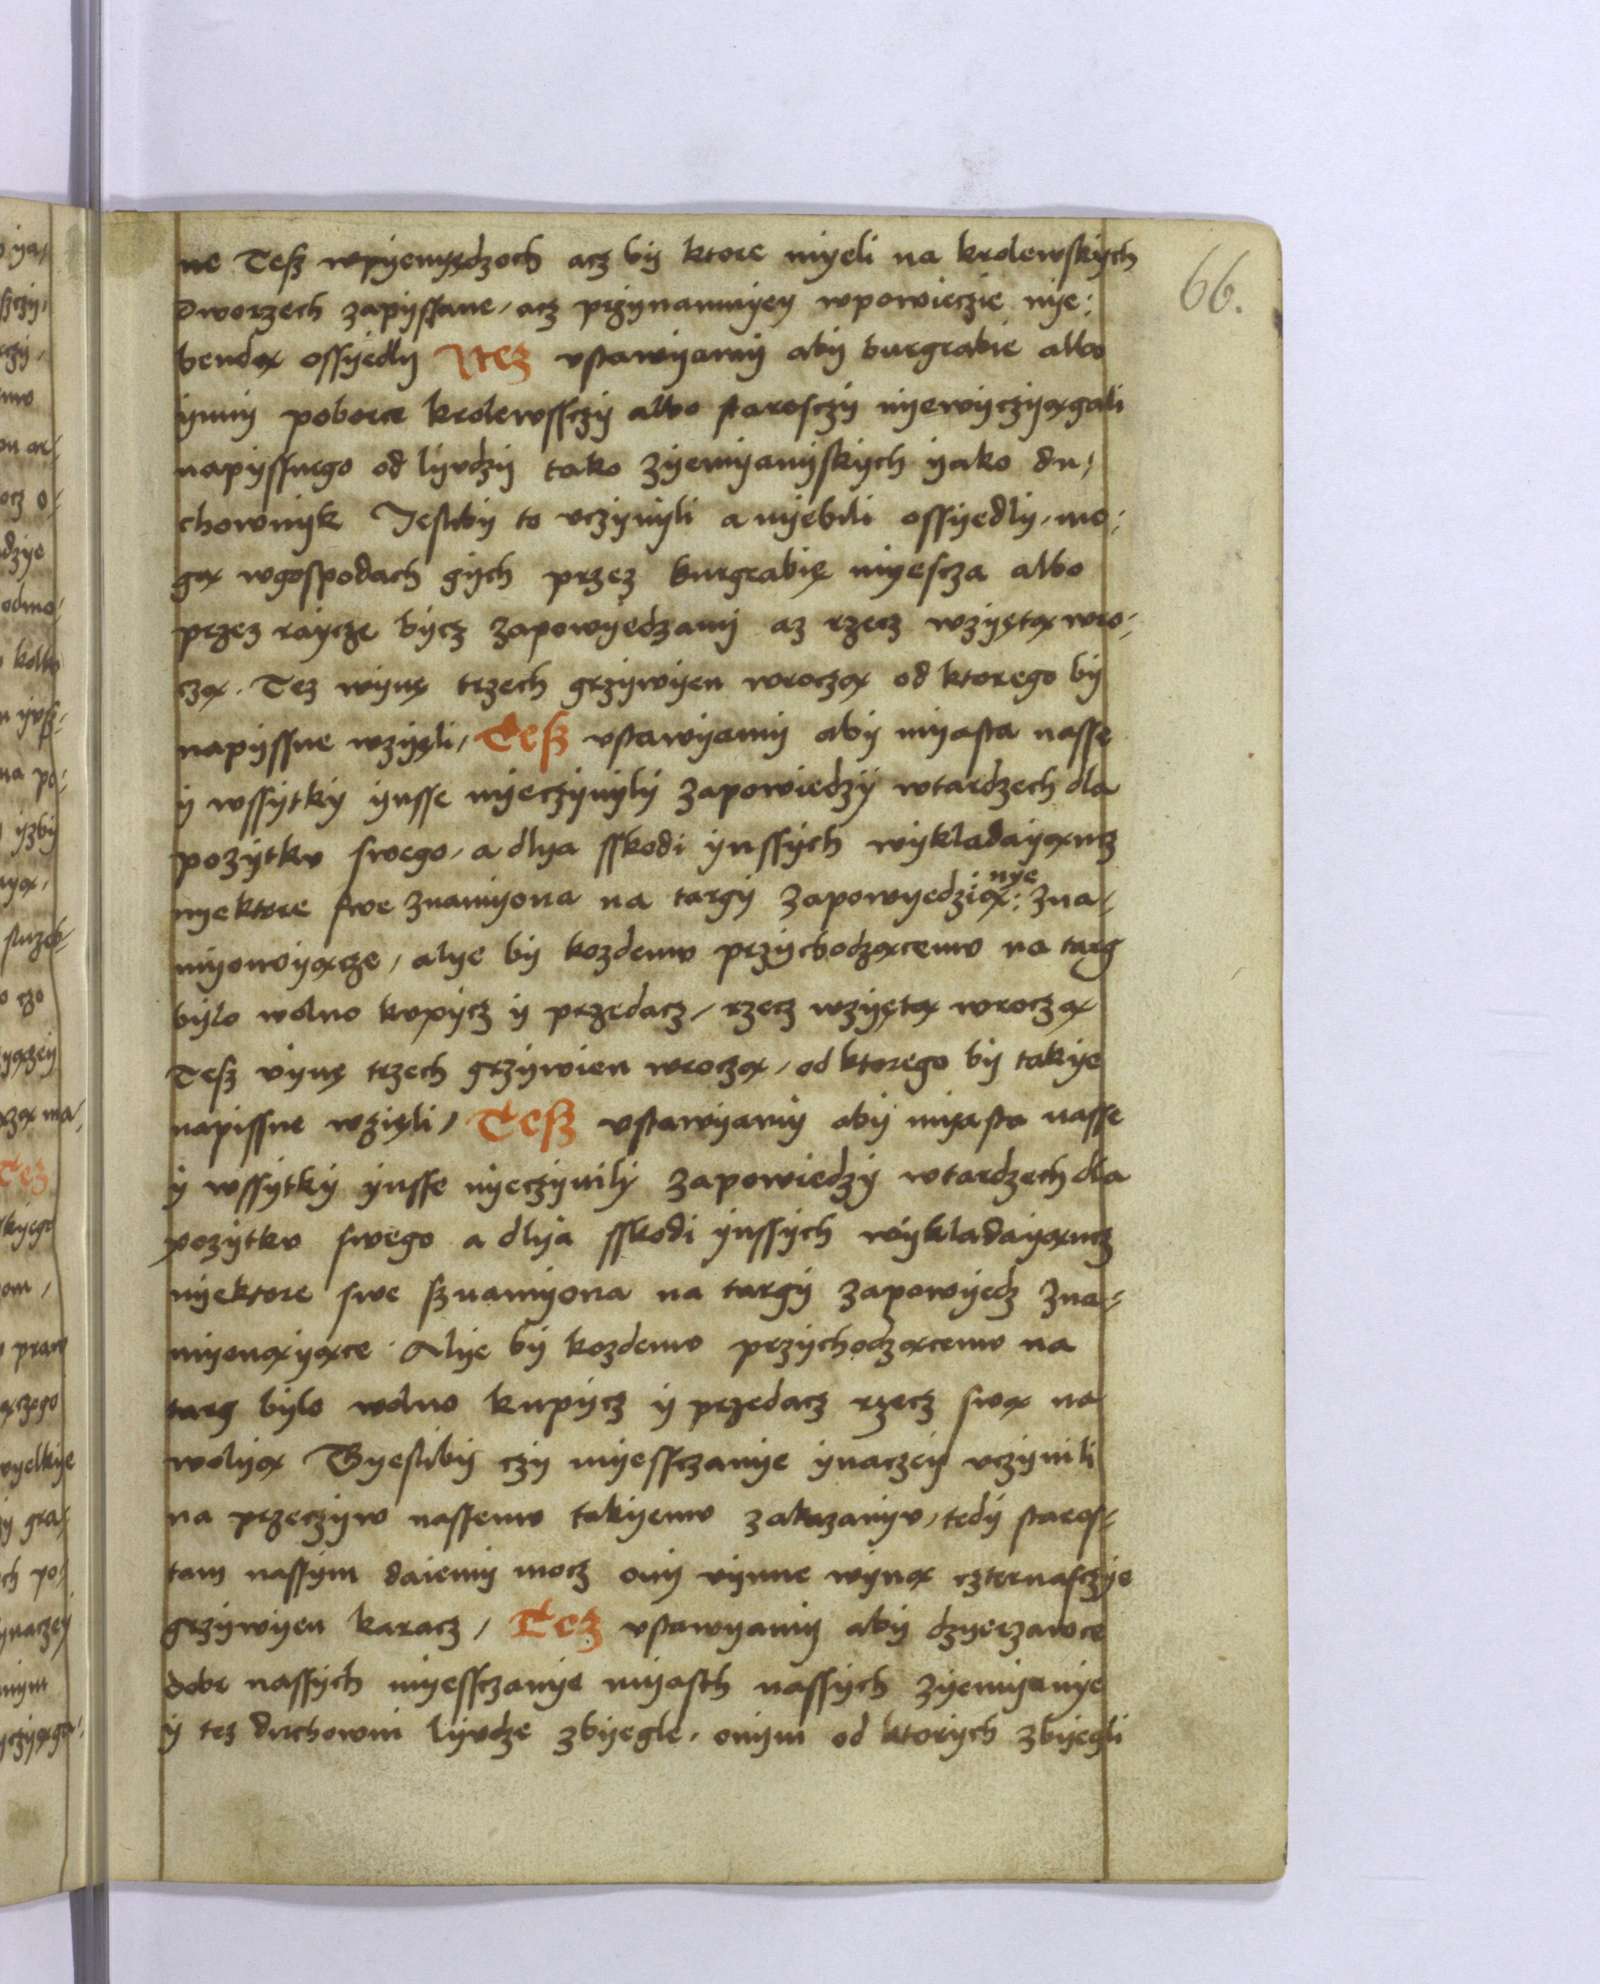 66.
ne Teſz wpyenyędzoch acz by ktore myeli na krolewſkych
Dworzech zapyſſane, acz przynamnyey wpowieczie nye:
bendą oſſyedly Itez vſtawyamy aby burgrabie albo
ynny poborce krolewſſczy albo ſtaroſczy nyewyczyągali
napyſſnego od lyvdzy tako zyemyanyſkych yako du-
chownyk Jeſtliby to vczynyli a nyebili oſſyedly, mo:
gą wgoſpodach gych przez burgrabię myeſcza albo
przez raycze bycz zapowyedzany az rzecz wzyętą wro:
czą. Tez wynę trzech grzywyen wroczą od ktorego by
napyſſne wzyęli, Teſz vſtawyamy aby myaſta naſſe
y wſſytky ynſſe nyeczynyly zapowiedzy wtardzech dla
pozytkv ſwego, a dlya ſſkodi ynſſych wykladayąncz
nyektore ſwe znamyona na targy zapowyedzią: nye zna-
myonvyącze, alye by kozdemv przychodzącemv na targ
bylo wolno kvpycz y przedacz, rzecz wzyętą wroczą
Teſz vynę trzech grzywien wroczą, od ktorego by takye
napiſſne wzięli, Teſz vſtawyamy aby myaſta naſſe
y wſſytky ynſſe nyeczynily zapowiedzy wtardzech dla
pozytkv ſwego a dlya ſſkodi ynſſych wykladayąncz
nyektore ſwe ſznamyona na targy zapowyedz zna-
myonąyące. Alye by kozdemv przychodzącemv na
targ bylo wolno kupycz y przedacz rzecz ſwą na
wolyą Gyeſliby czy myeſſczanye ynaczey vczynili
na przeczyw naſſemv takyemv zakazanyv, tedy ſtaroſ-
tam naſſym daiemy mocz ony vynne wyną czternaſczye
grzywyen karacz, Tez vſtawyamy aby dzyerzawce
dobr naſſych myeſſczanye myaſth naſſych zyemyanye
y tez duchowni lyvdze zbyegle, onym od ktorych zbyegli